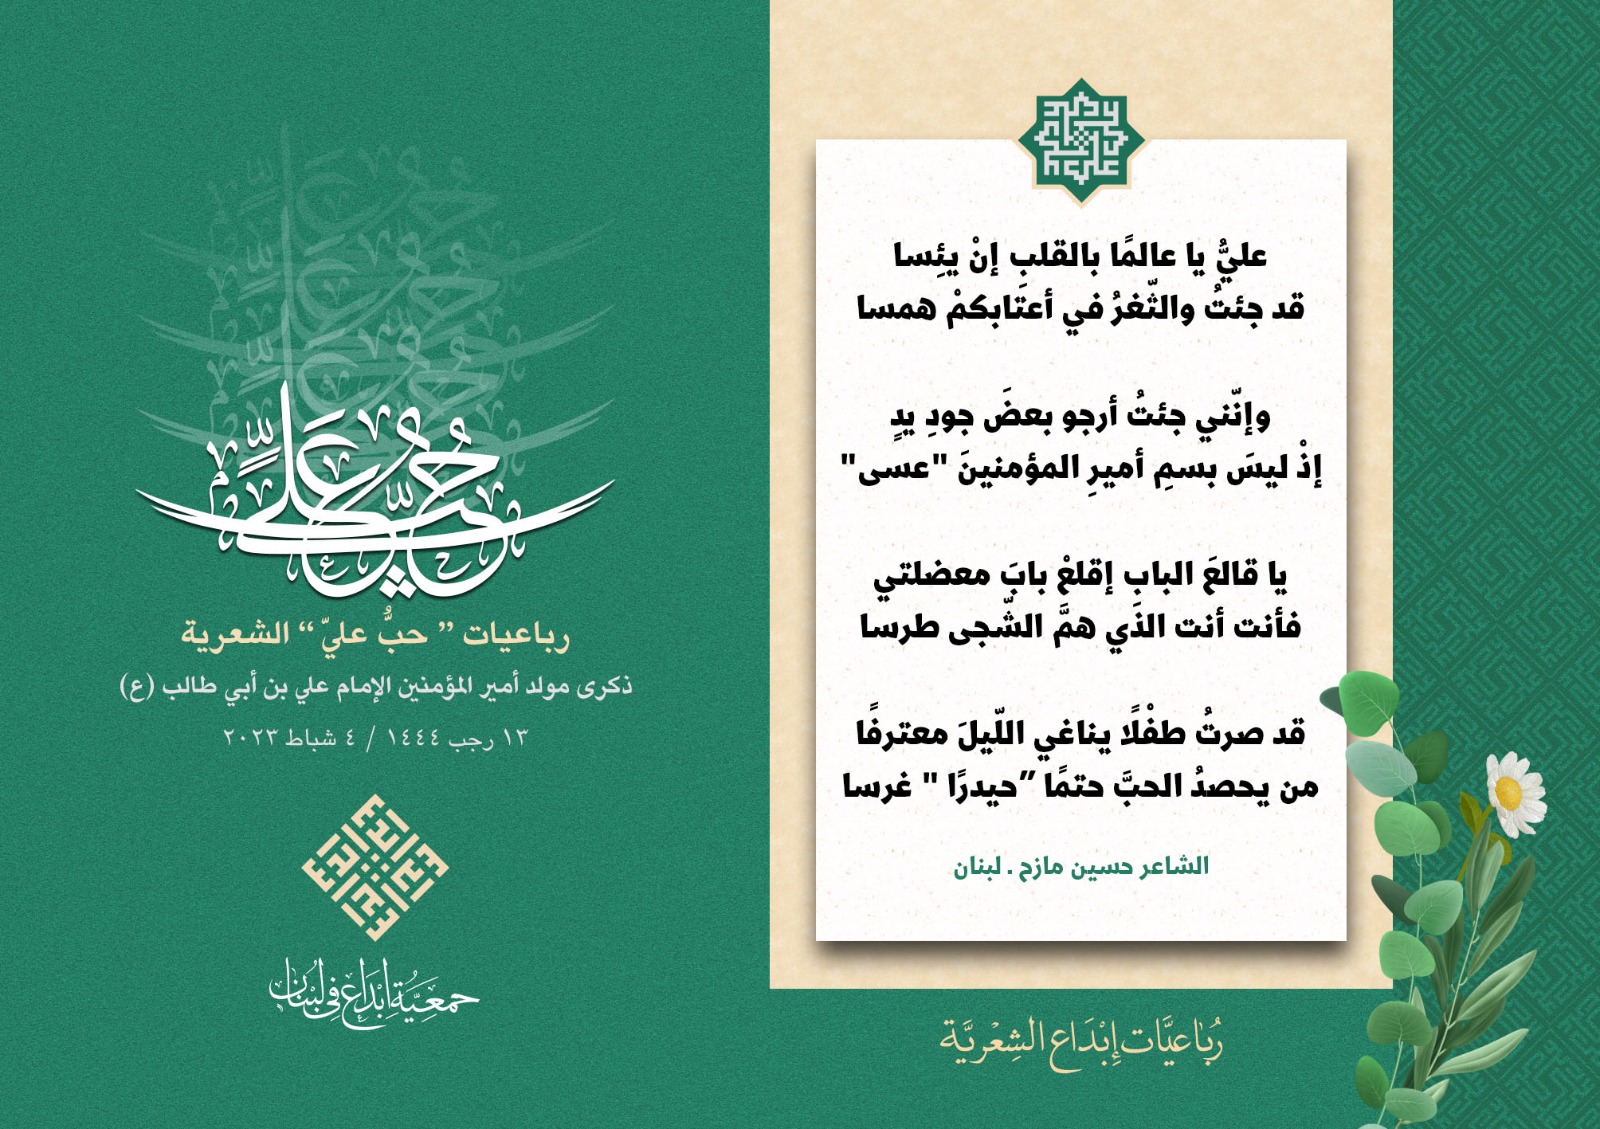 عليُّ يا عالمًا بالقلبِ إنْ يئِسا
قد جئتُ والثّغرُ في أعتابكمْ همسا
وإنّني جئتُ أرجو بعضَ جودِ يدٍ
إذْ ليسَ بسمِ أميرِ المؤمنينَ "عسى"
يا قالعَ البابِ إقلعْ بابَ معضلتي
فأنت أنت الذي همَّ الشّجى طرسا
قد صرتُ طفْلًا يناغي اللّيلَ معترفًا
من يحصدُ الحبَّ حتمًا ”حيدرًا " غرسا
الشاعر حسين مازح . لبنان
رُباعيَّات إبْدَاع الشِعْريَّة
حُبُّ عَلِيٍّ
رباعيات ” حبُّ عليّ “ الشعرية
ذكرى مولد أمير المؤمنين الإمام علي بن أبي طالب (ع)
١٣ رجب ١٤٤٤ / ٤ شباط ٢٠٢٣
جمعيَّة إبْدَاع في لبْنان